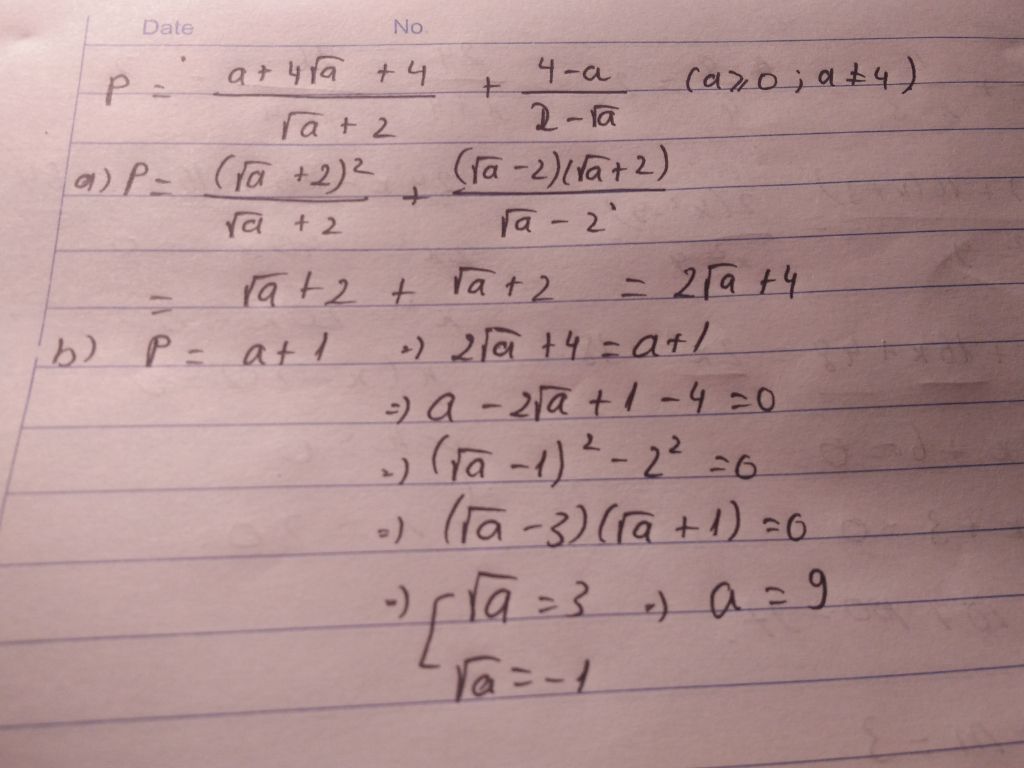 Date No.
P = (a + 4√a + 4)/(√a + 2) + (4 - a)/(2 - √a) (a ⩾ 0 ; a ≠ 4)
a) P = (√a + 2)²/(√a + 2) + (√a - 2)(√a + 2)/(√a - 2)
= √a + 2 + √a + 2 = 2√a + 4
b) P = a + 1 => 2√a + 4 = a + 1
=> a - 2√a + 1 - 4 = 0
=> (√a - 1)² - 2² = 0
=> (√a - 3)(√a + 1) = 0
=> [ √a = 3 => a = 9
√a = -1